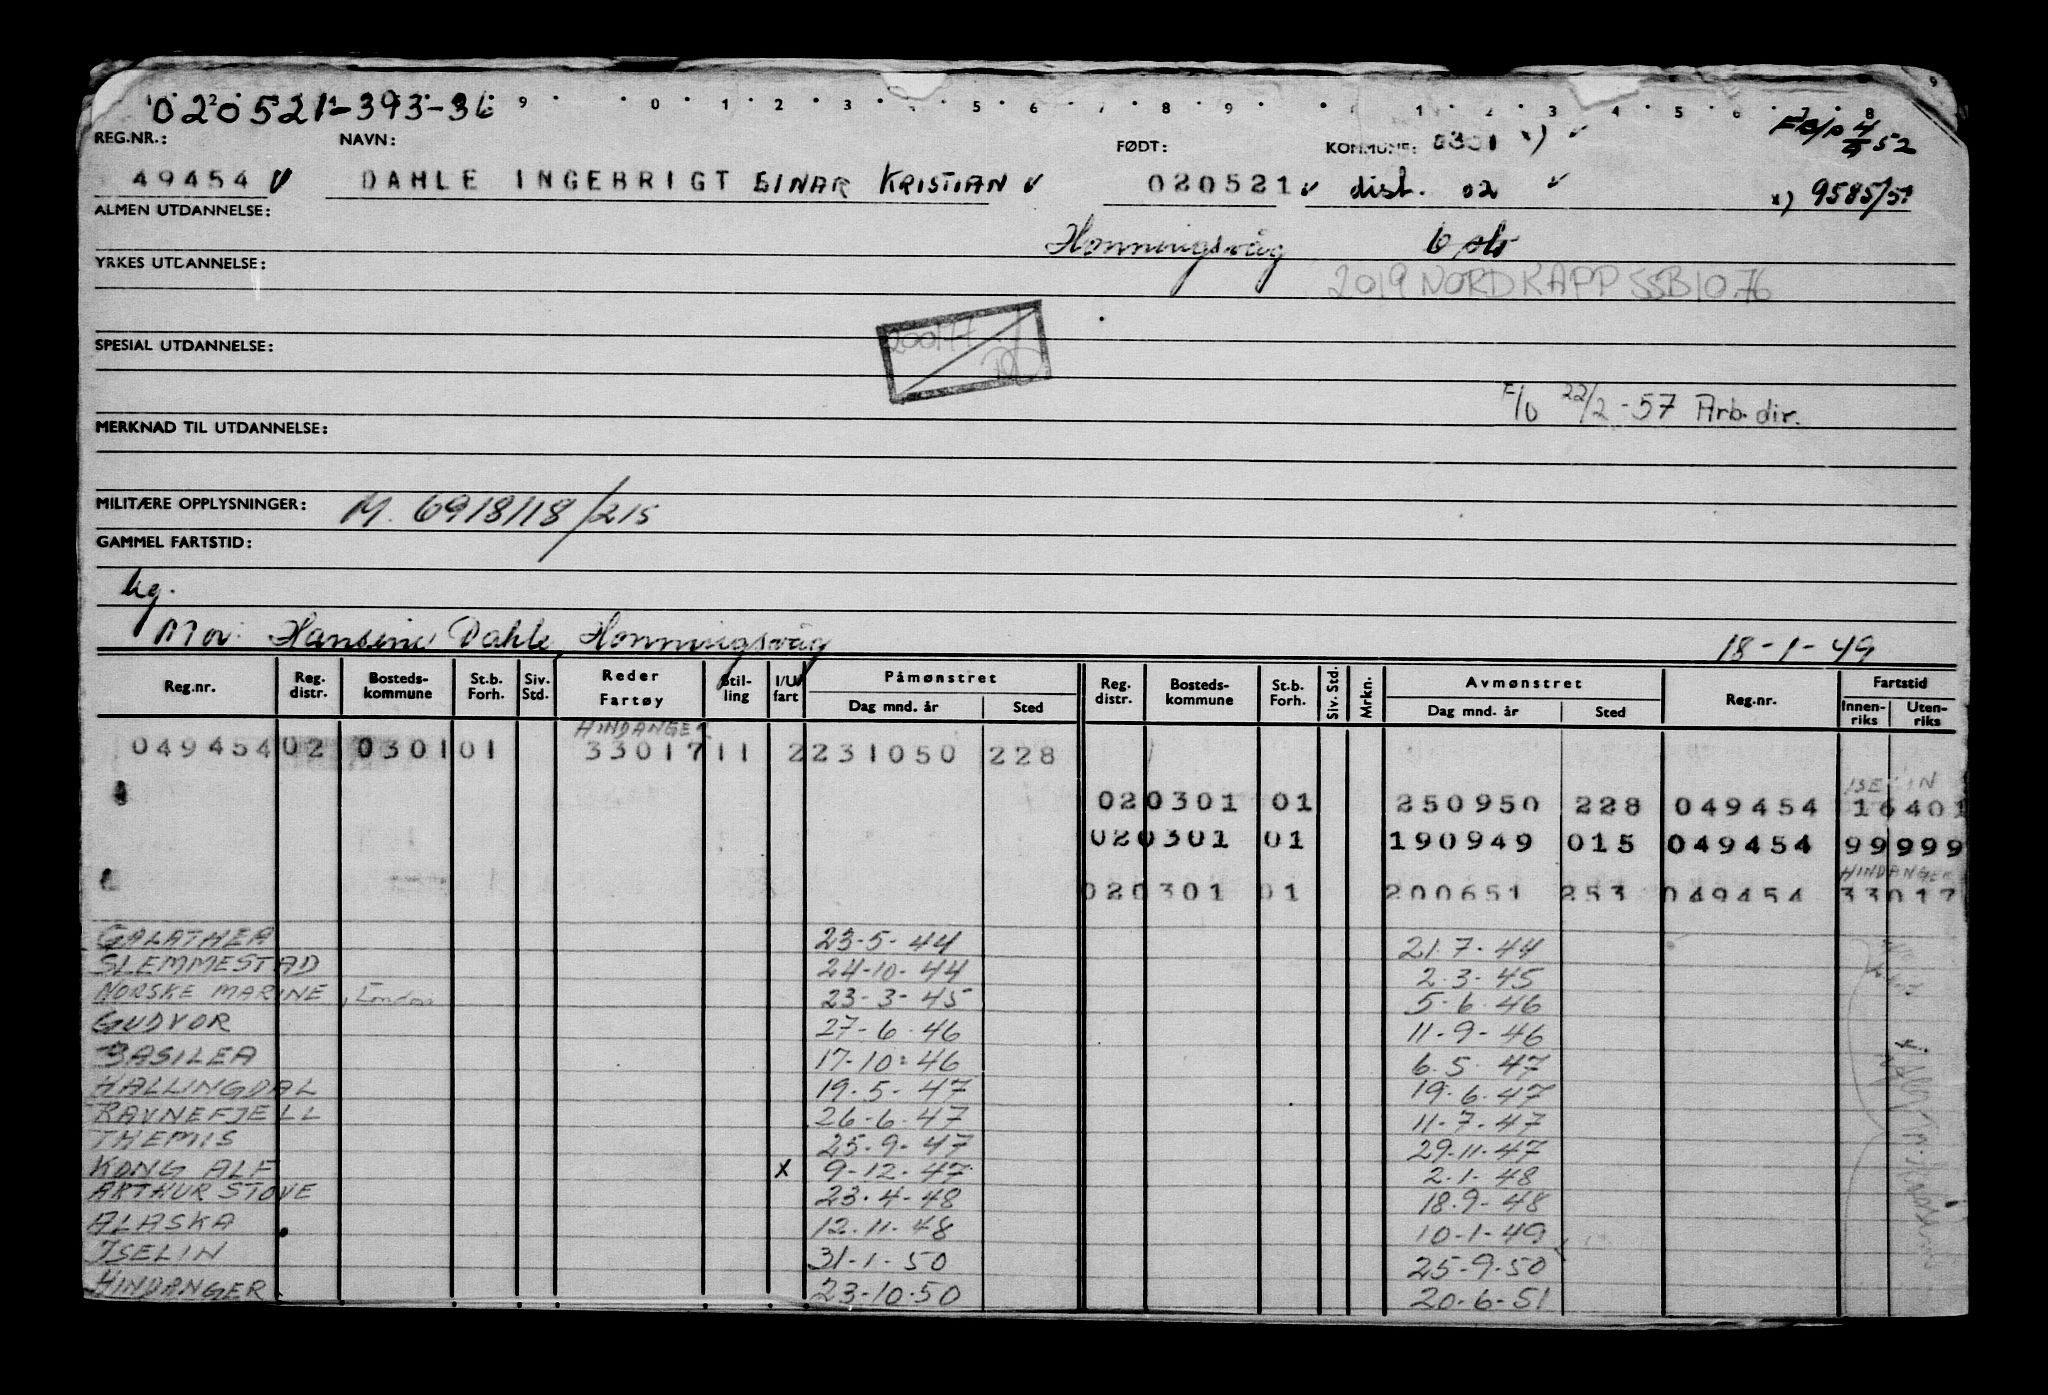 020521-393-36
9 0 1 2 3 5 6 7 8 9 1 2 3 4 5 6 7 8
REG.NR.: NAVN: FØDT: KOMMUNE: 0301 x) ✓ 4/4 52
49454 ✓ DAHLE INGEBRIGT EINAR KRISTIAN ✓ 020521 ✓ dist. 02 ✓ x) 9585/51
ALMEN UTDANNELSE:
Honningsvåg Oslo
YRKES UTDANNELSE:
2019 NORDKAPP SSB 10.76
200177
SPESIAL UTDANNELSE:
F/O 22/2-57 Arb.dir.
MERKNAD TIL UTDANNELSE:
MILITÆRE OPPLYSNINGER: M. 6918118/215
GAMMEL FARTSTID:
ug.
Mor: Hansine Dahle, Honningsvåg 18-1-49
Reg.nr. Reg. distr. Bosteds-kommune St.b. Forh. Siv. Std. Reder Fartøy Stil-ling I/U fart Påmønstret Dag mnd. år Sted Reg. distr. Bosteds-kommune St.b. Forh. Siv. Std. Mrkn. Avmønstret Dag mnd. år Sted Reg.nr. Fartstid Innen-riks Uten-riks
HINDANGER
049454 02 0301 01 33017 11 2 231050 228
ISELIN
02 0301 01 250950 228 049454 16401
02 0301 01 190949 015 049454 99999
HINDANGER
02 0301 01 200651 253 049454 33017
GALATHEA 23-5-44 21.7.44
SLEMMESTAD 24-10-44 2.3.45
NORSKE MARINE, London 23-3-45 5.6.46
GUDVOR 27-6.46 11-9-46
BASILEA 17-10-46 6.5.47
HALLINGDAL 19.5-47 19.6.47
RAVNEFJELL 26-6.47 11-7.47
THEMIS 25.9-47 29.11.47
KONG ALF X 9-12-47 2.1.48
ARTHUR STOVE 23.4-48 18.9-48
ALASKA 12.11.48 10-1-49
ISELIN 31-1-50 25-9.50
HINDANGER 23-10.50 20-6-51